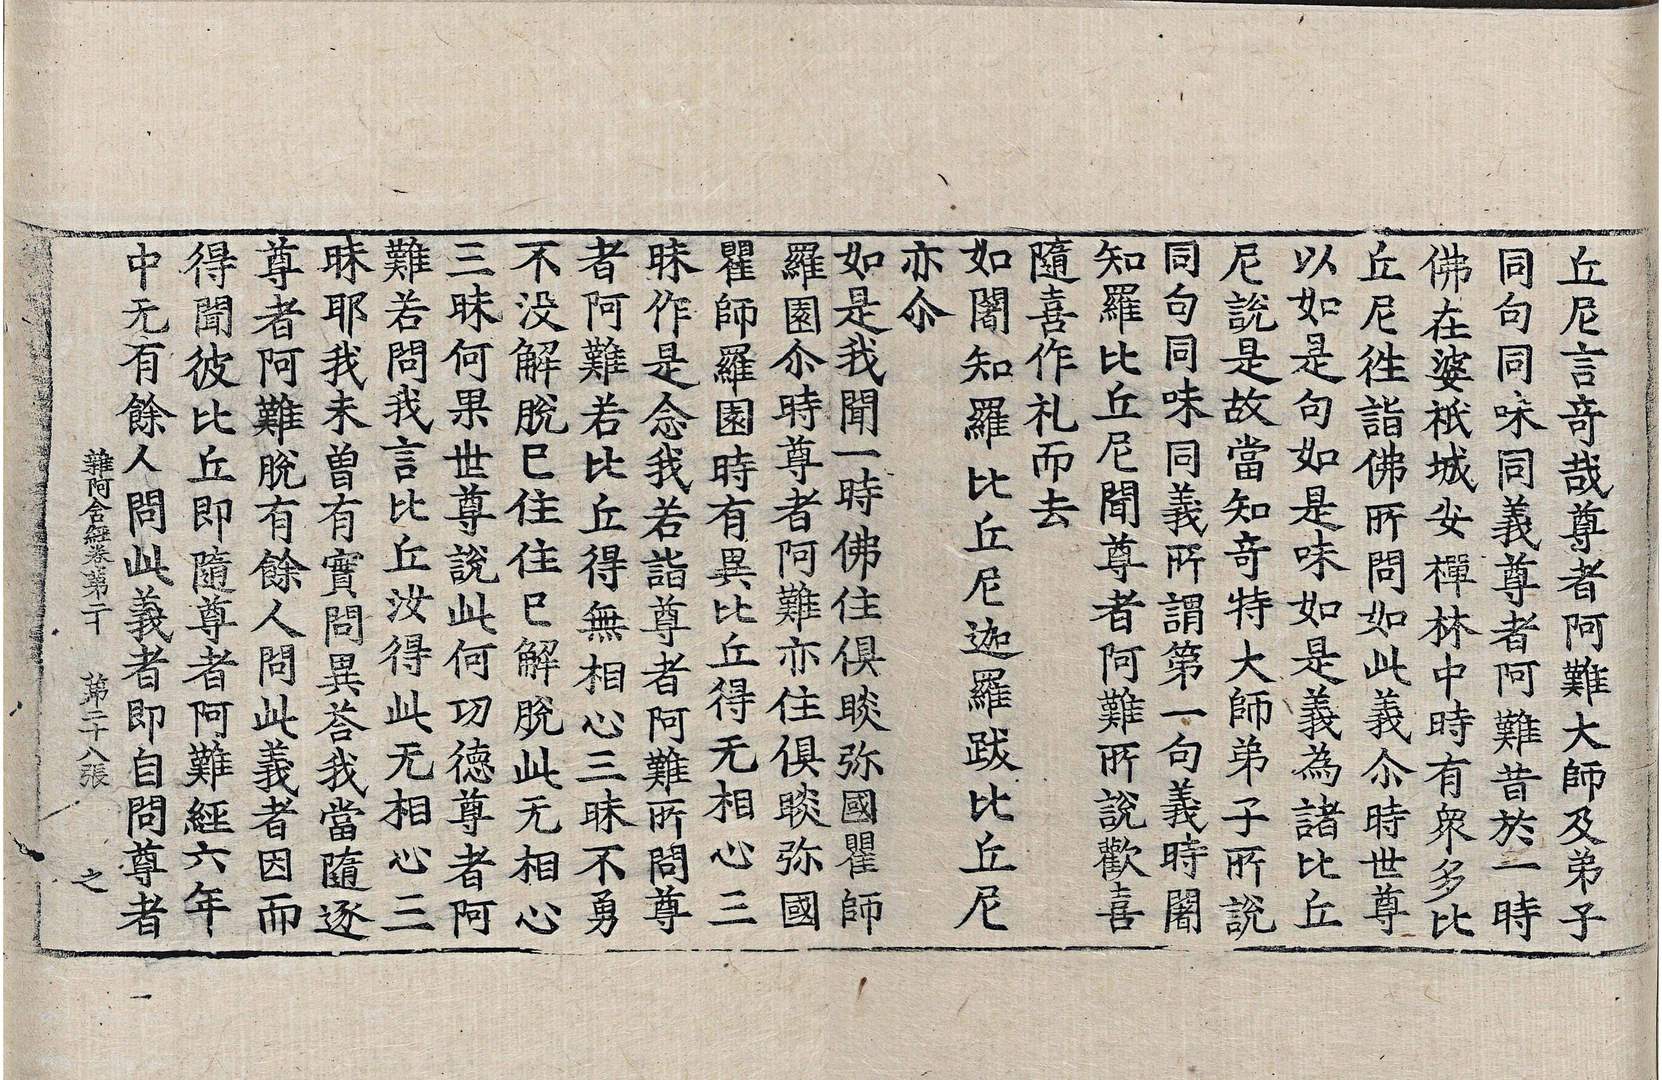 丘尼言奇哉尊者阿難大師及弟子
同句同味同義尊者阿難昔於一時
佛在婆祇城安禪林中時有衆多比
丘尼徃詣佛所問如此義尒時世尊
以如是句如是味如是義為諸比丘
尼說是故當知奇特大師弟子所說
同句同味同義所謂第一句義時闍
知羅比丘尼聞尊者阿難所說歡喜
隨喜作礼而去
如闍知羅比丘尼迦羅跋比丘尼
亦尒
如是我聞一時佛住俱睒弥國瞿師
羅園尒時尊者阿難亦住俱睒弥國
瞿師羅園時有異比丘得无相心三
昧作是念我若詣尊者阿難所問尊
者阿難若比丘得無相心三昧不勇
不没解脫已住住已解脫此无相心
三昧何果世尊說此何功德尊者阿
難若問我言比丘汝得此无相心三
昧耶我未曽有實問異荅我當隨逐
尊者阿難脫有餘人問此義者因而
得聞彼比丘即隨尊者阿難經六年
中无有餘人問此義者即自問尊者
雜阿含經卷第二十　第二十八張　之